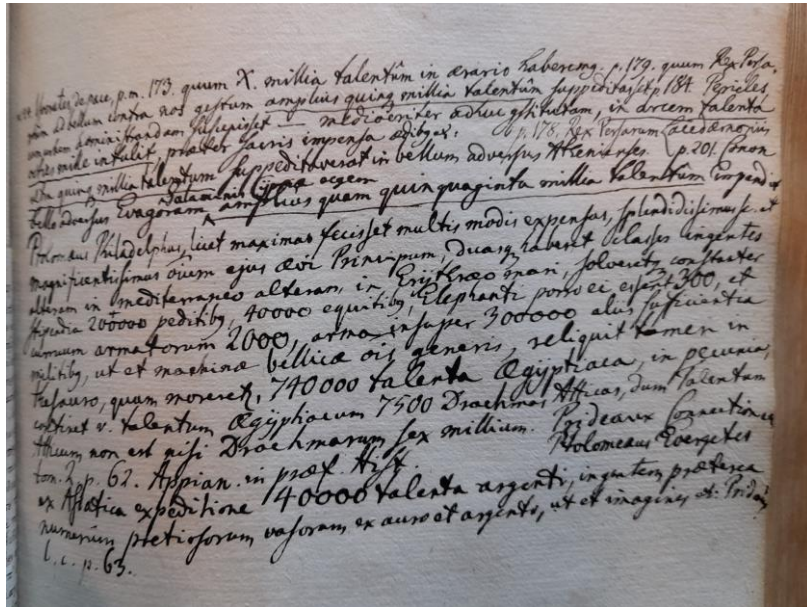 Isocrates de pace, p.m. 173. quum X. millia talentûm in ærario haberemq. p. 179. quum Rex Persa,
rum ad bellum contra nos gestum amplius quinq millia talentûm suppeditasset p 184. Pericles
administrandam suscepisset — mediocriter adhuc in arcem talenta
octies mille intulit, præter sacris impensa
p. 178. Rex Persarum Lacedæmoniis
quinq millia talentum suppeditaverat in bellum adversus Athenienses. p. 201. Conon
Salaminis Cypriæ regem
bello adversus Evagoram, amplius quam quinquaginta millia talentûm impendit
Ptolomæus Philadelphus, licet maximas fecisset multis modis expensas, splendidissimus sc. et
magnificentissimus oium ejus ævi Principum, duasq haberet classes ingentes
alteram in mediterraneo alteram, in Erythræo mari, solveretq constanter
stipendia 200000 peditibq, 40000 equitibq, Elephanti porro ei essent 300, et
curruum armatorum 2000, arma insuper 300000 aliis sufficientia
militibq, ut et machinæ bellicæ ois generis, reliquit tamen in
thesauro, quum moreretq, 740000 talenta Ægyptiaca, in pecunia,
continet v. talentum Ægyptiacum 7500 Drachmas Atticas, dum Talentum
Atticum non est nisi Drachmarum sex millium. Prideaux Connection
tom. 2. p. 62. Appian. in præf. Hist. Ptolomæus Evergetes
ex Asiatica expeditione 40000 talenta argenti, ingentem præterea
numerum pretiosorum vasorum ex auro et argento, ut et imagines et. Prid.
l. c. p. 63.